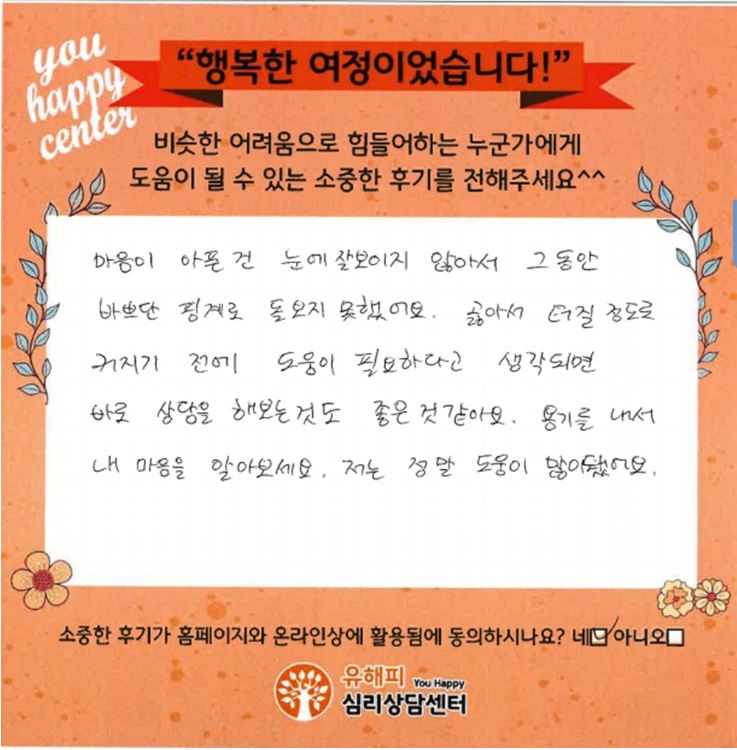 you
happy
center
“행복한 여정이었습니다!”
비슷한 어려움으로 힘들어하는 누군가에게
도움이 될 수 있는 소중한 후기를 전해주세요^^
마음이 아픈건 눈에 잘보이지 않아서 그동안
바쁘단 핑계로 돌보지 못했어요. 곪아서 터질 정도로
커지기 전에 도움이 필요하다고 생각되면
바로 상담을 해보는것도 좋은것같아요. 용기를 내서
내 마음을 알아보세요. 저는 정말 도움이 많이됐어요.
소중한 후기가 홈페이지와 온라인상에 활용됨에 동의하시나요? 네☑ 아니오☐
유해피 You Happy
심리상담센터